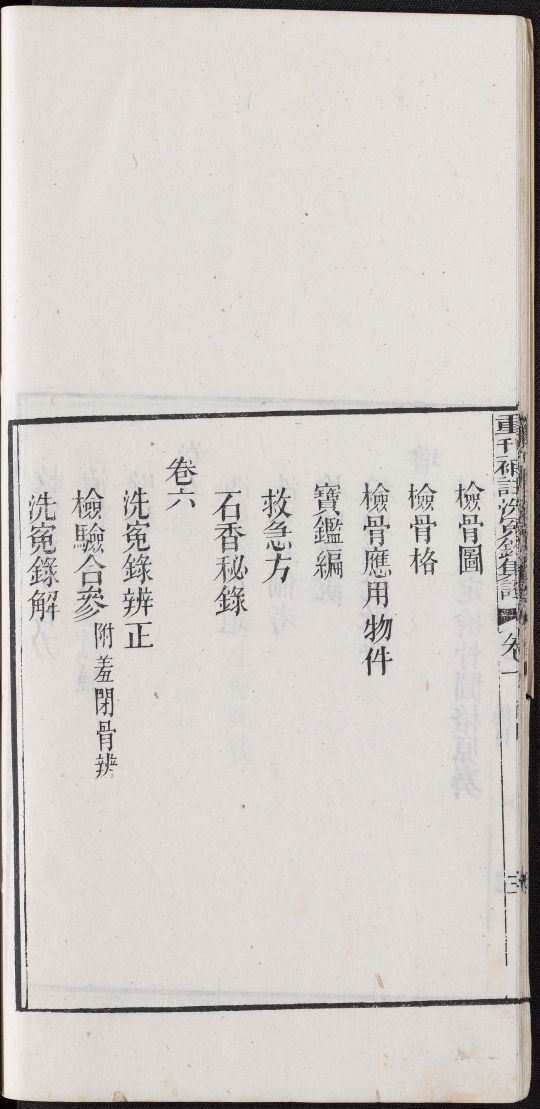 重刊補註洗冤錄集證
卷一
檢骨圖
檢骨格
檢骨應用物件
寶鑑編
救急方
石香秘錄
卷六
洗冤錄辨正
檢驗合參 附羞閉骨辨
洗冤錄解